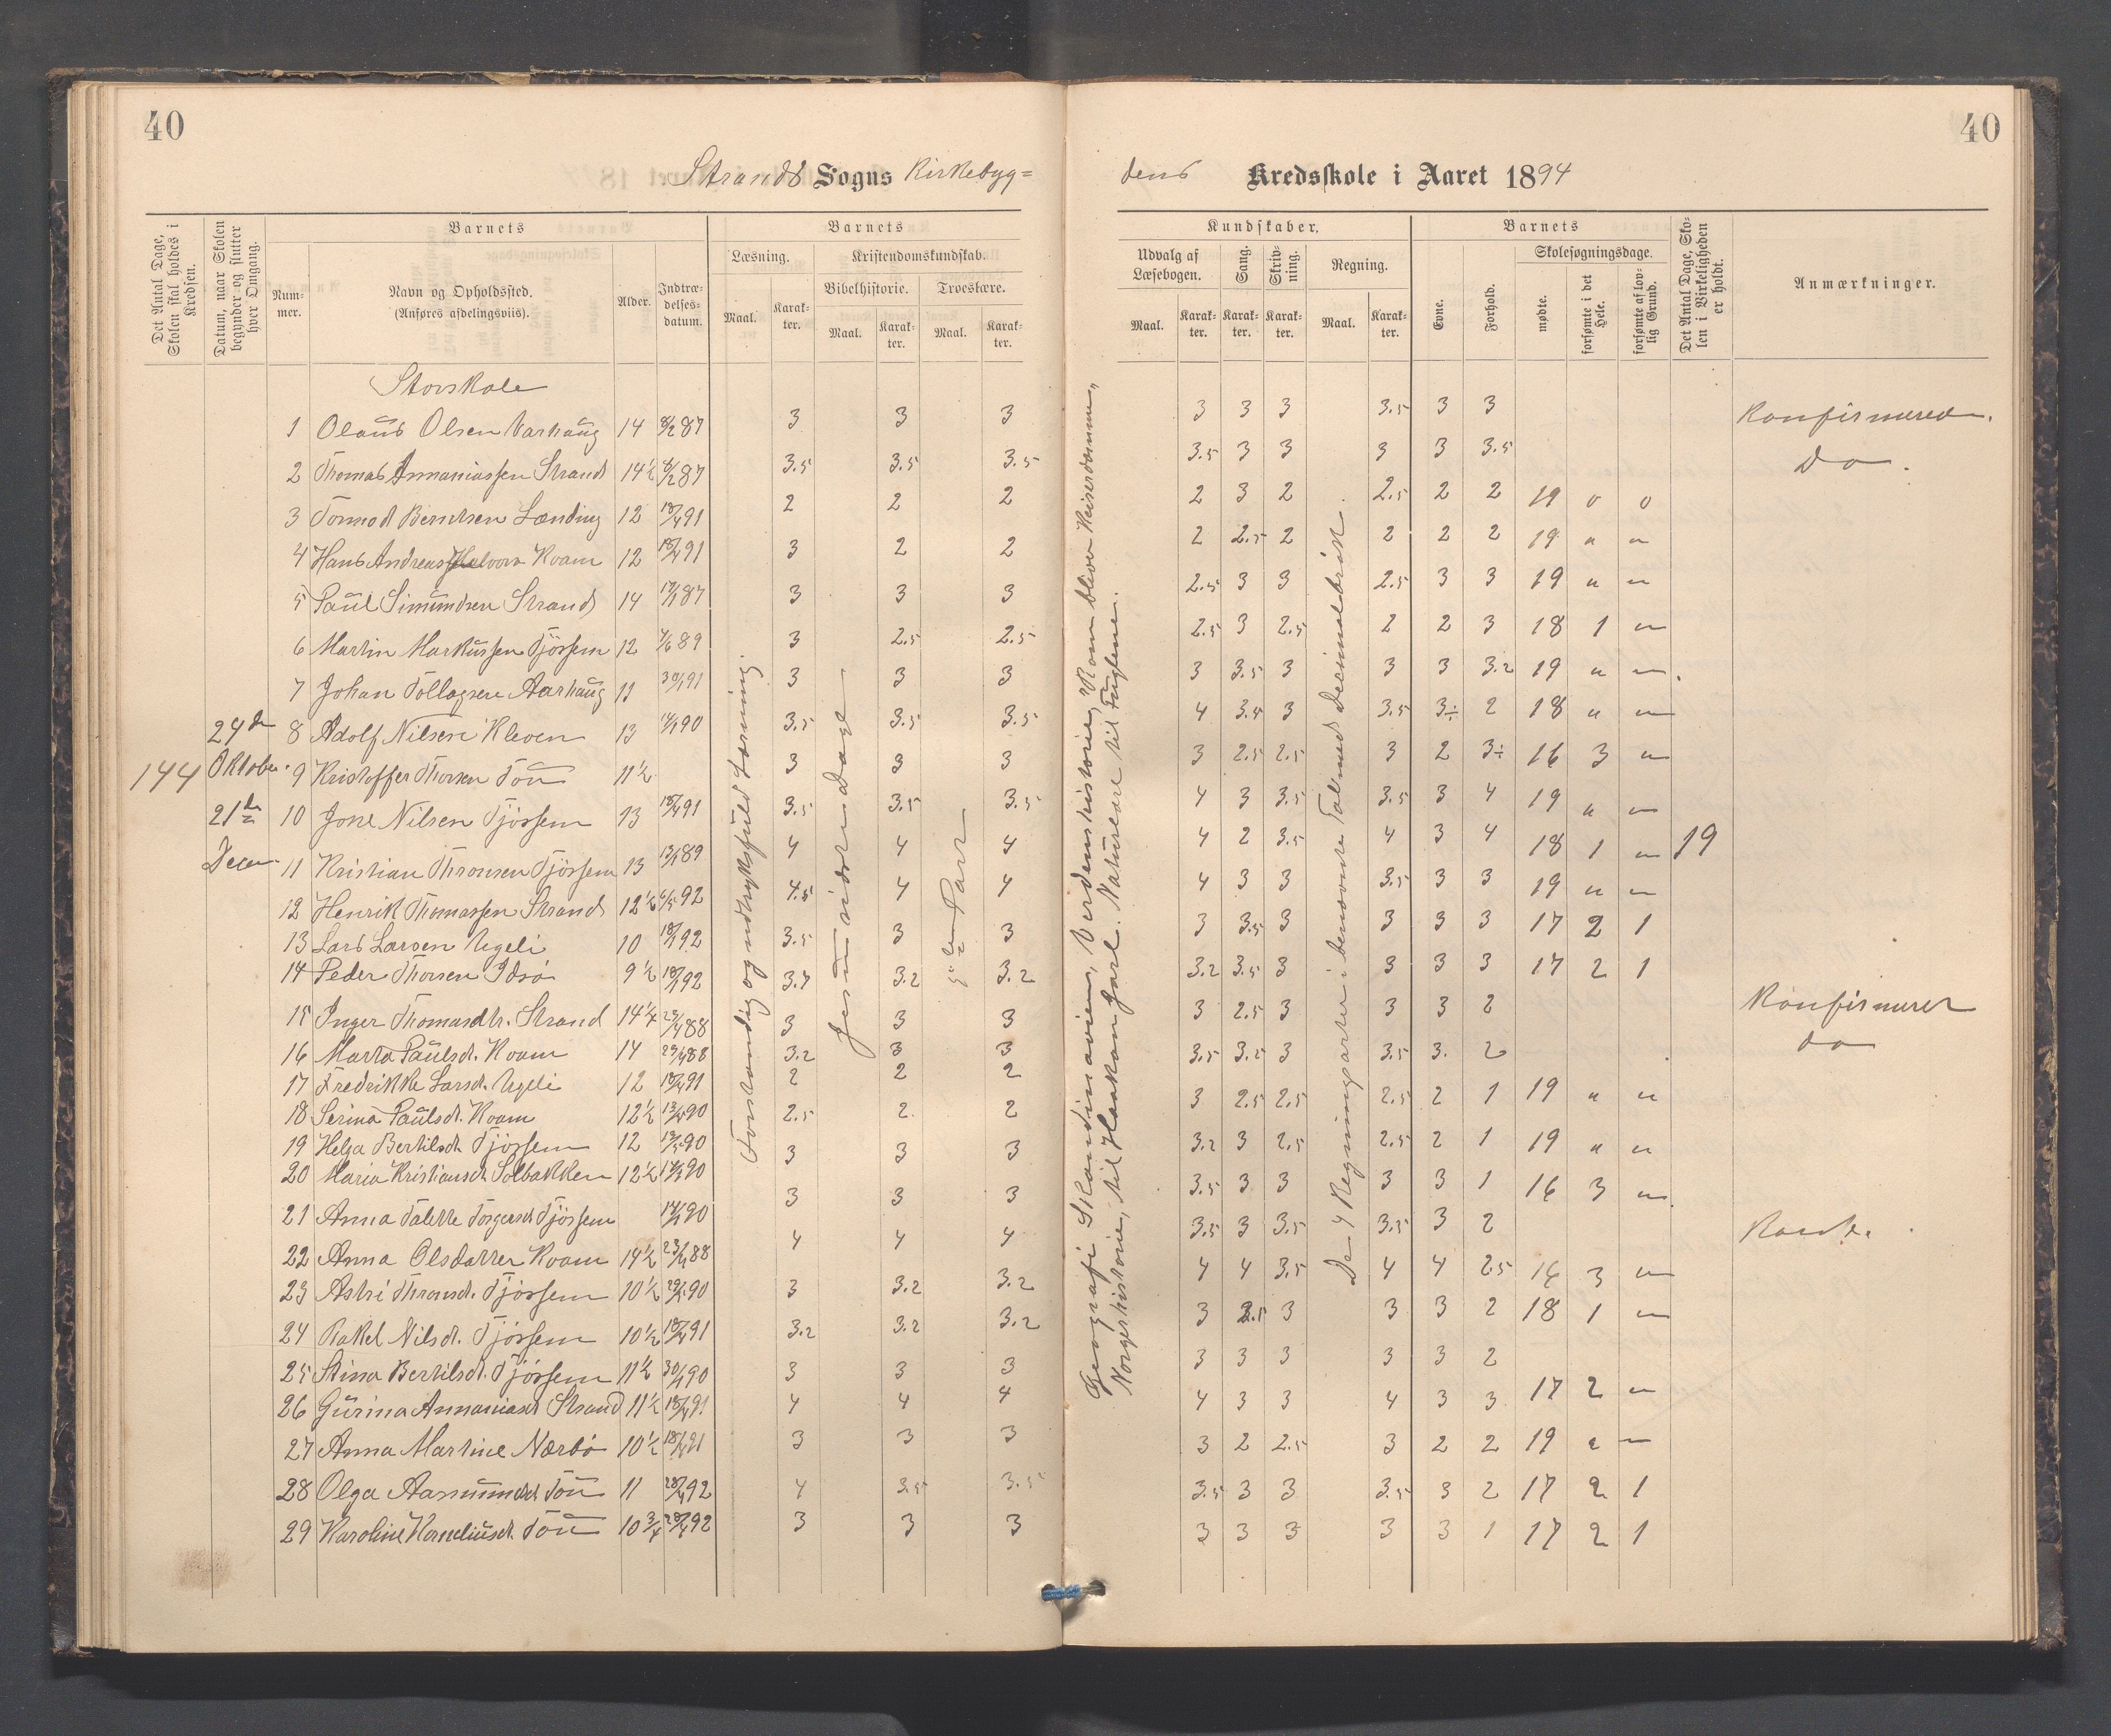 40
Strands Sogns Kirkebyg=
Det Antal Dage, Skolen skal holdes i Kredsen.
Datum, naar Skolen begynder og slutter hver Omgang.
Barnets
Nummer.
Navn og Opholdssted.
(Anføres afdelingsviis).
Alder.
Indtrædelsesdatum.
Barnets
Læsning.
Maal.
Karakter.
Kristendomskundskab.
Bibelhistorie.
Maal.
Karakter.
Troeslære.
Maal.
Karakter.
Storskole
1 Olaus Olsen Varhaug 14 8/2 87 3 3 3
2 Thomas Annaniassen Strand 14½ 8/2 87 3.5 3.5 3.5
3 Tormod Berntsen Lænding 12 18/4 91 2 2 2
4 Hans Andreas Kvam 12 18/4 91 3 2 2
5 Paul Simundsen Strand 14 87 3 3 3
6 Martin Markussen Tjössem 12 89 3 2.5 2.5
7 Johan Tollagsen Aarhaug 11 91 3 3 3
8 Adolf Nilsen Kleven 13 90 3.5 3.5 3.5
9 Kristoffer Thorsen Tou 11½ 3 3 3
10 Jone Nilsen Tjössem 13 18/4 91 3.5 3.5 3.5
11 Kristian Thronsen Tjössem 13 89 4 4 4
12 Henrik Thomassen Strand 12½ 6/5 92 4.5 4 4
13 Lars Larsen Ugeli 10 92 3.5 3 3
14 Peder Thorsen Idsø 9½ 92 3.7 3.2 3.2
15 Inger Thomasdtr. Strand 14¼ 88 3 3 3
16 Marta Paulsdt. Kvam 14 88 3.2 3 3
17 Fredrikke Larsd. Ugeli 12 18/4 91 2 2 2
18 Serina Paulsdt. Kvam 12½ 90 2.5 2 2
19 Helga Bertilsdt. Tjössem 12 90 3 3 3
20 Maria Kristiansdt. Solbakken 12½ 90
21 Anna Talette Torgersdt. Tjössem 90 3 3 3
22 Anna Olsdatter Kvam 14½ 88 4 4 4
23 Astri Thronsdt. Tjössem 10½ 90 3 3.2 3.2
24 Rakel Nilsdt. Tjössem 10½ 18/4 91 3.2 3.2 3.2
25 Stina Bertilsdt. Tjössem 11½ 90 3 3 3
26 Gurina Annaniasdt. Strand 11½ 18/4 91 4 4 4
27 Anna Martine Nærbø 10½ 18/4 91 3 3 3
28 Olga Aasmundsdt. Tou 11 28/4 92 4 3.5 3.5
29 Karoline Korneliusdt. Tou 10¾ 28/4 92 3 3 3
144
24de
Oktober
21de
Decem
Forstandig og udtryksfuld Læsning.
Jesu sidste Dage
5te Part
40
dens Kredsskole i Aaret 1894
Kundskaber.
Udvalg af Læsebogen.
Maal.
Karakter.
Sang.
Karakter.
Skrivning.
Karakter.
Regning.
Maal.
Karakter.
Barnets
Evne.
Forhold.
Skolesøgningsdage.
mødte.
forsømte i det Hele.
forsømte af lovlig Grund.
Det Antal Dage, Skolen i Virkeligheden er holdt.
Anmærkninger.
Geografi: Skandinavien, Verdenshistorie, "Rom bliver Keiserdømme",
Norgeshistorie, til Haakon Jarl. Naturlære til Fuglene.
De 4 Regningsarter i benævnte Tal med Decimalbrøk.
3 3 3 3.5 3 3 Konfirmeret.
3.5 3 3 3 3 3.5 Do.
2 3 2 2.5 2 2 19 0 0
2 2.5 2 2 2 2 19 " "
2.5 3 3 2.5 3 3 19 " "
2.5 3 2.5 2 2 3 18 1 "
3 3.5 3 3 3 3.2 19 " "
4 3.5 3 3.5 3÷ 2 18 " "
3 2.5 2.5 3 2 3÷ 16 3 "
4 3 3.5 3.5 3 4 19 " "
4 2 3.5 4 3 4 18 1 " 19
4 3 3 3.5 3 3 19 " "
3 3.5 3 3 3 3 17 2 1
3.2 3.5 3 3 3 3 17 2 1
3 2.5 3 3 3 2 Konfirmeret
3.5 3.5 3 3.5 3. 2 do
3 2.5 2.5 2.5 2 1 19 " "
3.2 3 2.5 2.5 2 1 19 " "
3.5 3 3 3 3 1 16 3 "
3.5 3 3.5 3.5 3 2
4 4 3.5 4 4 2.5 16 3 "
3 2.5 3 3 3 2 18 1 "
3 3 3 3 3 2
4 3 3 4 3 3 17 2 "
3 2 2.5 3 2 2 19 " "
3.5 3 3 3.5 3 2 17 2 1
3 3 3 3 3 1 17 2 1